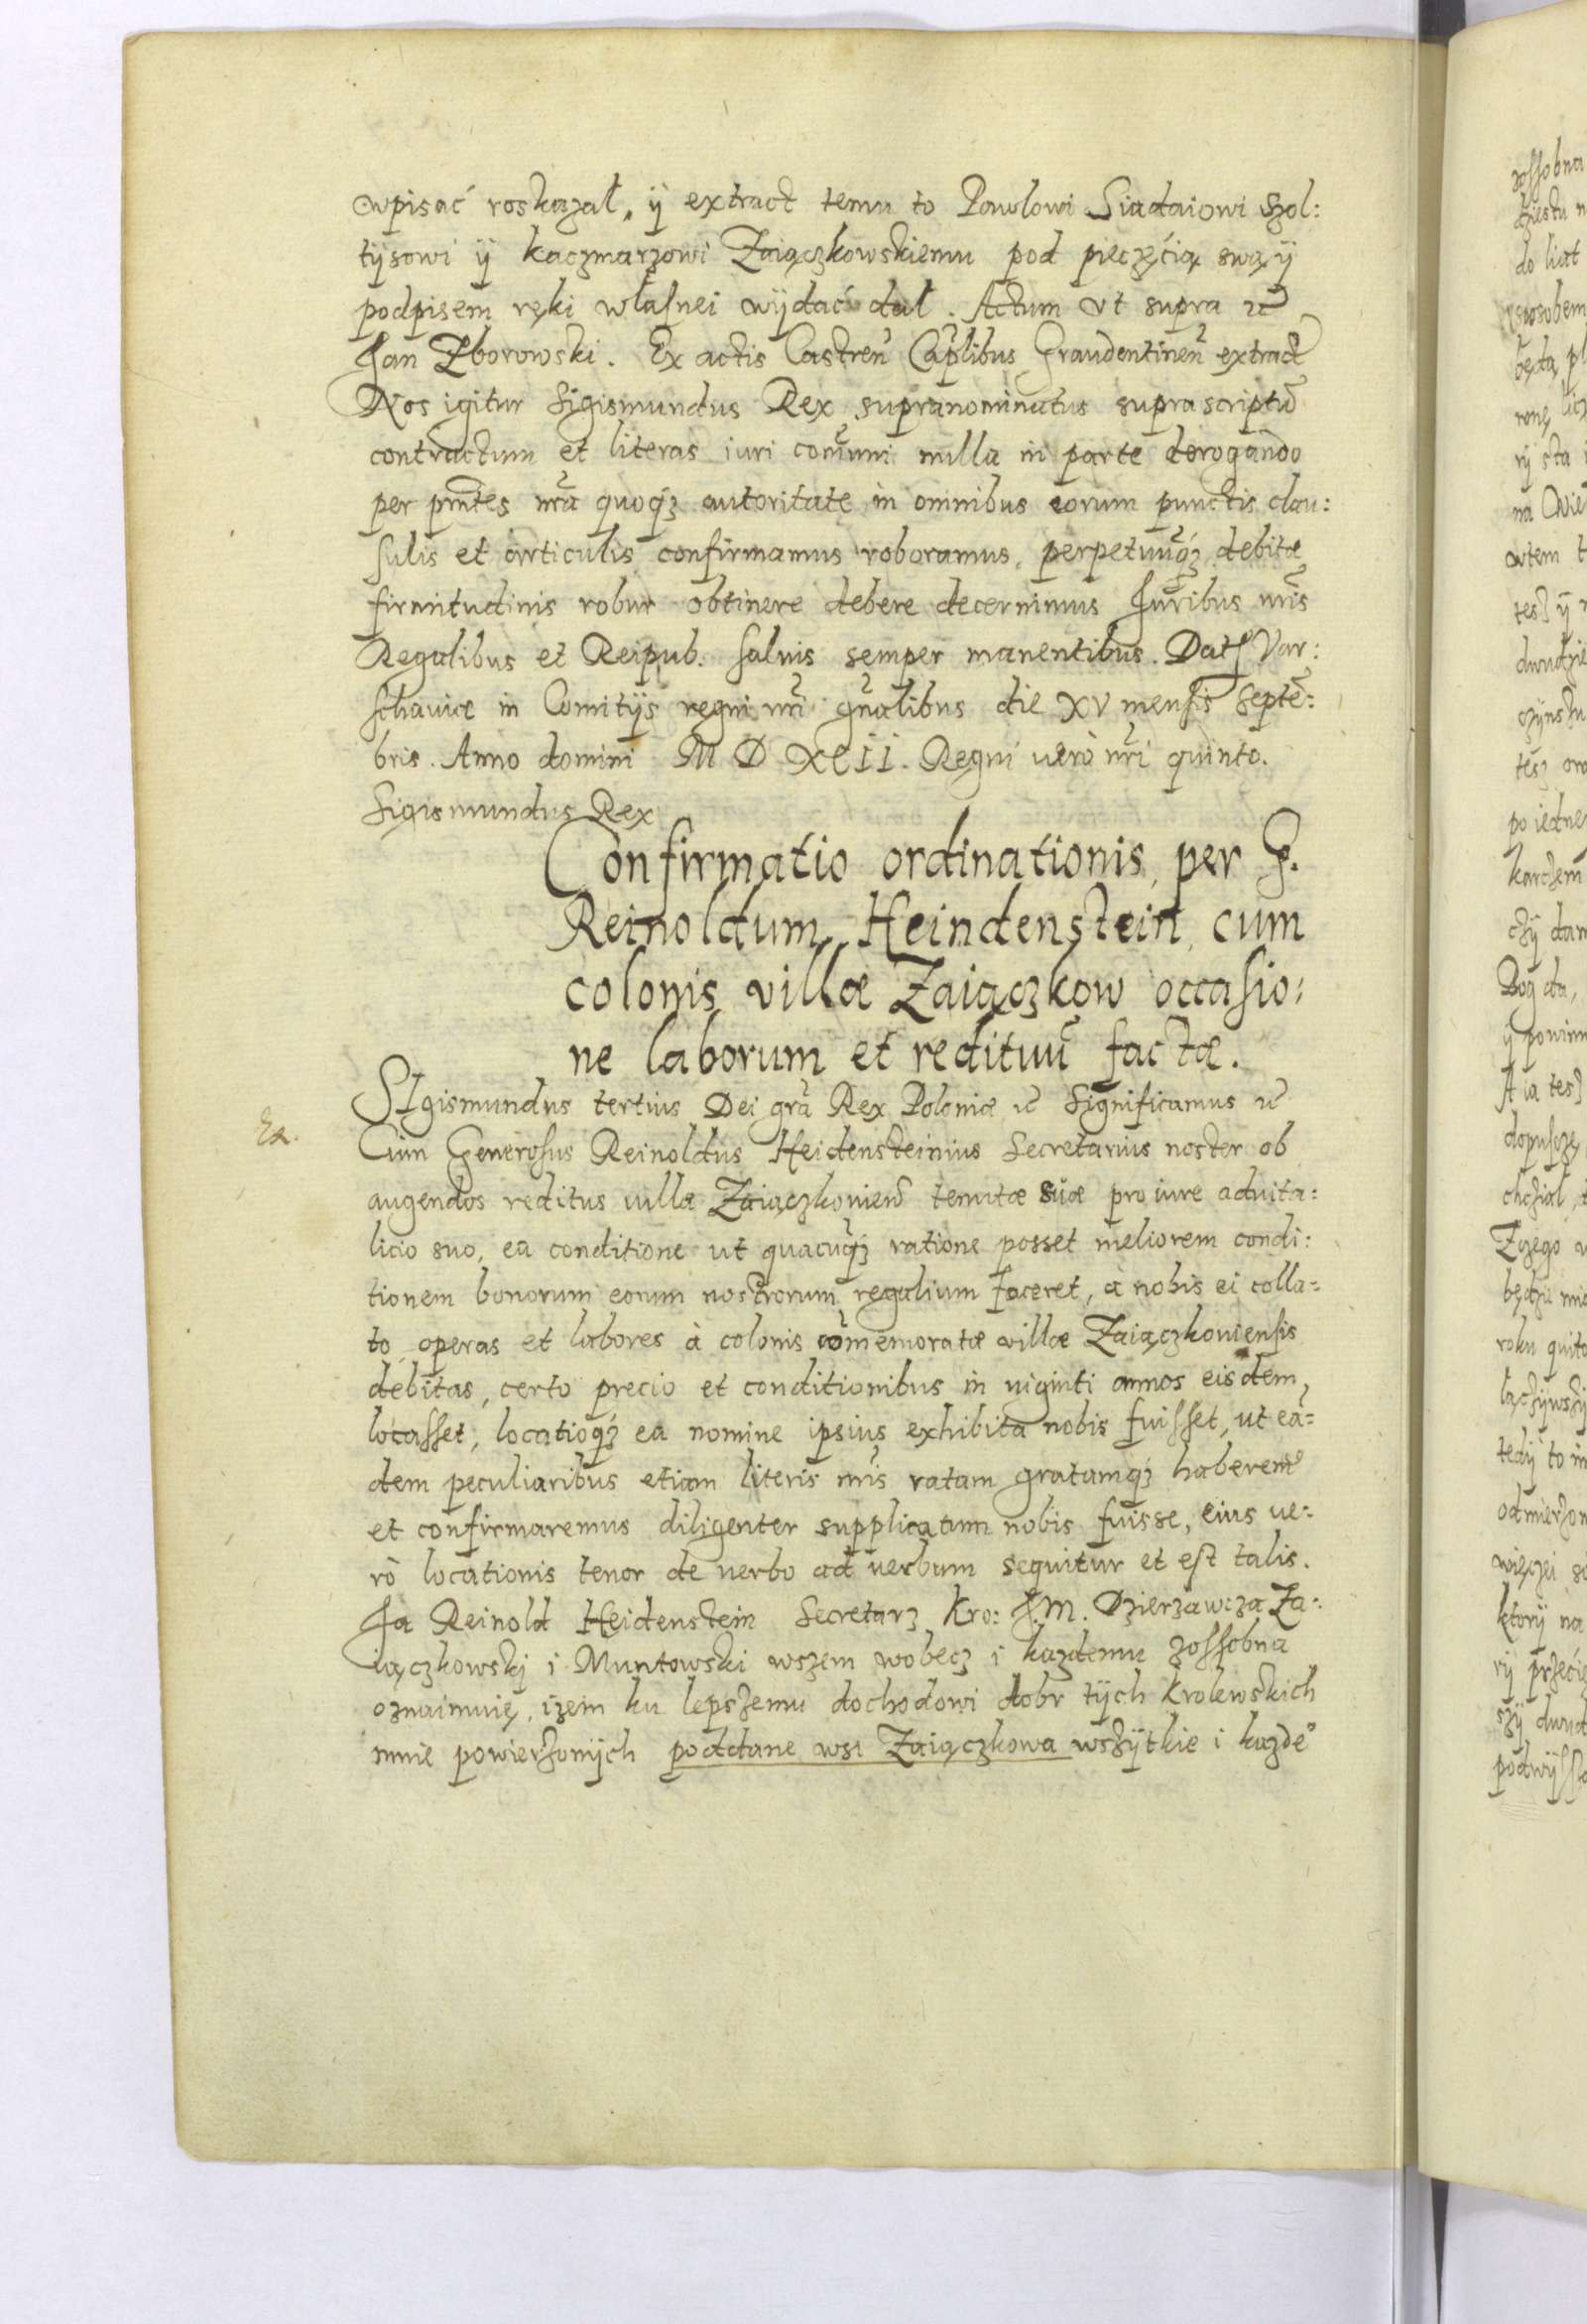 wpisać roskazał, ÿ extract temu to Pawlowi Siadaiowi szol:
tÿsowi ÿ kaczmarzowi Zaiączkowskiemu pod pieczęćią swą ÿ
podpisem ręki własnei wÿdać dał. Actum vt supra
Jan Zborowski. Ex actis Castren̄ Cap̄libus Graudentinen̄ extract
Nos igitur Sigismundus Rex supranominatus suprascriptū
contractum et literas iuri com̄uni nulla in parte derogando
per pn̄tes nr̄a quoq₃ autoritate in omnibus eorum punctis clau:
sulis et articulis confirmamus roboramus, perpetuūq₃ debitæ
firmitudinis robur obtinere debere decernimus Juribus nr̄is
Regalibus et Reipub. saluis semper manentibus. Dat Var:
schauiæ in Comitÿs regni nr̄i gn̄alibus die XV mensis Septē:
bris. Anno domini M D XCII. Regni uerò nr̄i quinto.
Sigismundus Rex
Confirmatio ordinationis, per G.
Reinoldum Heindenstein, cum
colonis villæ Zaiączkow occasio:
ne laborum et redituū factæ.
SIgismundus tertius Dei grā Rex Poloniæ Significamus
Ex.
Cum Generosus Reinoldus Heidensteinius Secretarius noster ob
augendos reditus uillæ Zaiączkouien̄ tenutæ suæ pro iure aduita:
licio suo, ea conditione ut quacūq₃ ratione posset meliorem condi:
tionem bonorum eorum nostrorum regalium faceret, à nobis ei colla:
to, operas et labores à colonis com̄emoratæ villæ Zaiączkouiensis
debitas, certo precio et conditionibus in uiginti annos eisdem
locasset, locatioq₃ ea nomine ipsius exhibita nobis fuisset, ut eā:
dem peculiaribus etiam literis nr̄is ratam gratamq₃ haberem⁹
et confirmaremus diligenter supplicatum nobis fuisse, eius ue:
rò locationis tenor de uerbo ad uerbum sequitur et est talis.
Ja Reinold Heidenstein Secretarz Kro: J. M. Dzierzawcza Za:
iączkowskj i Muntowski wszem wobecz i kazdemu zossobna
oznaimuię, izem ku lepszemu dochodowi dobr tÿch krolewskich
mnie powierzonÿch poddane wsi Zaiączkowa wszÿtkie i kazde°